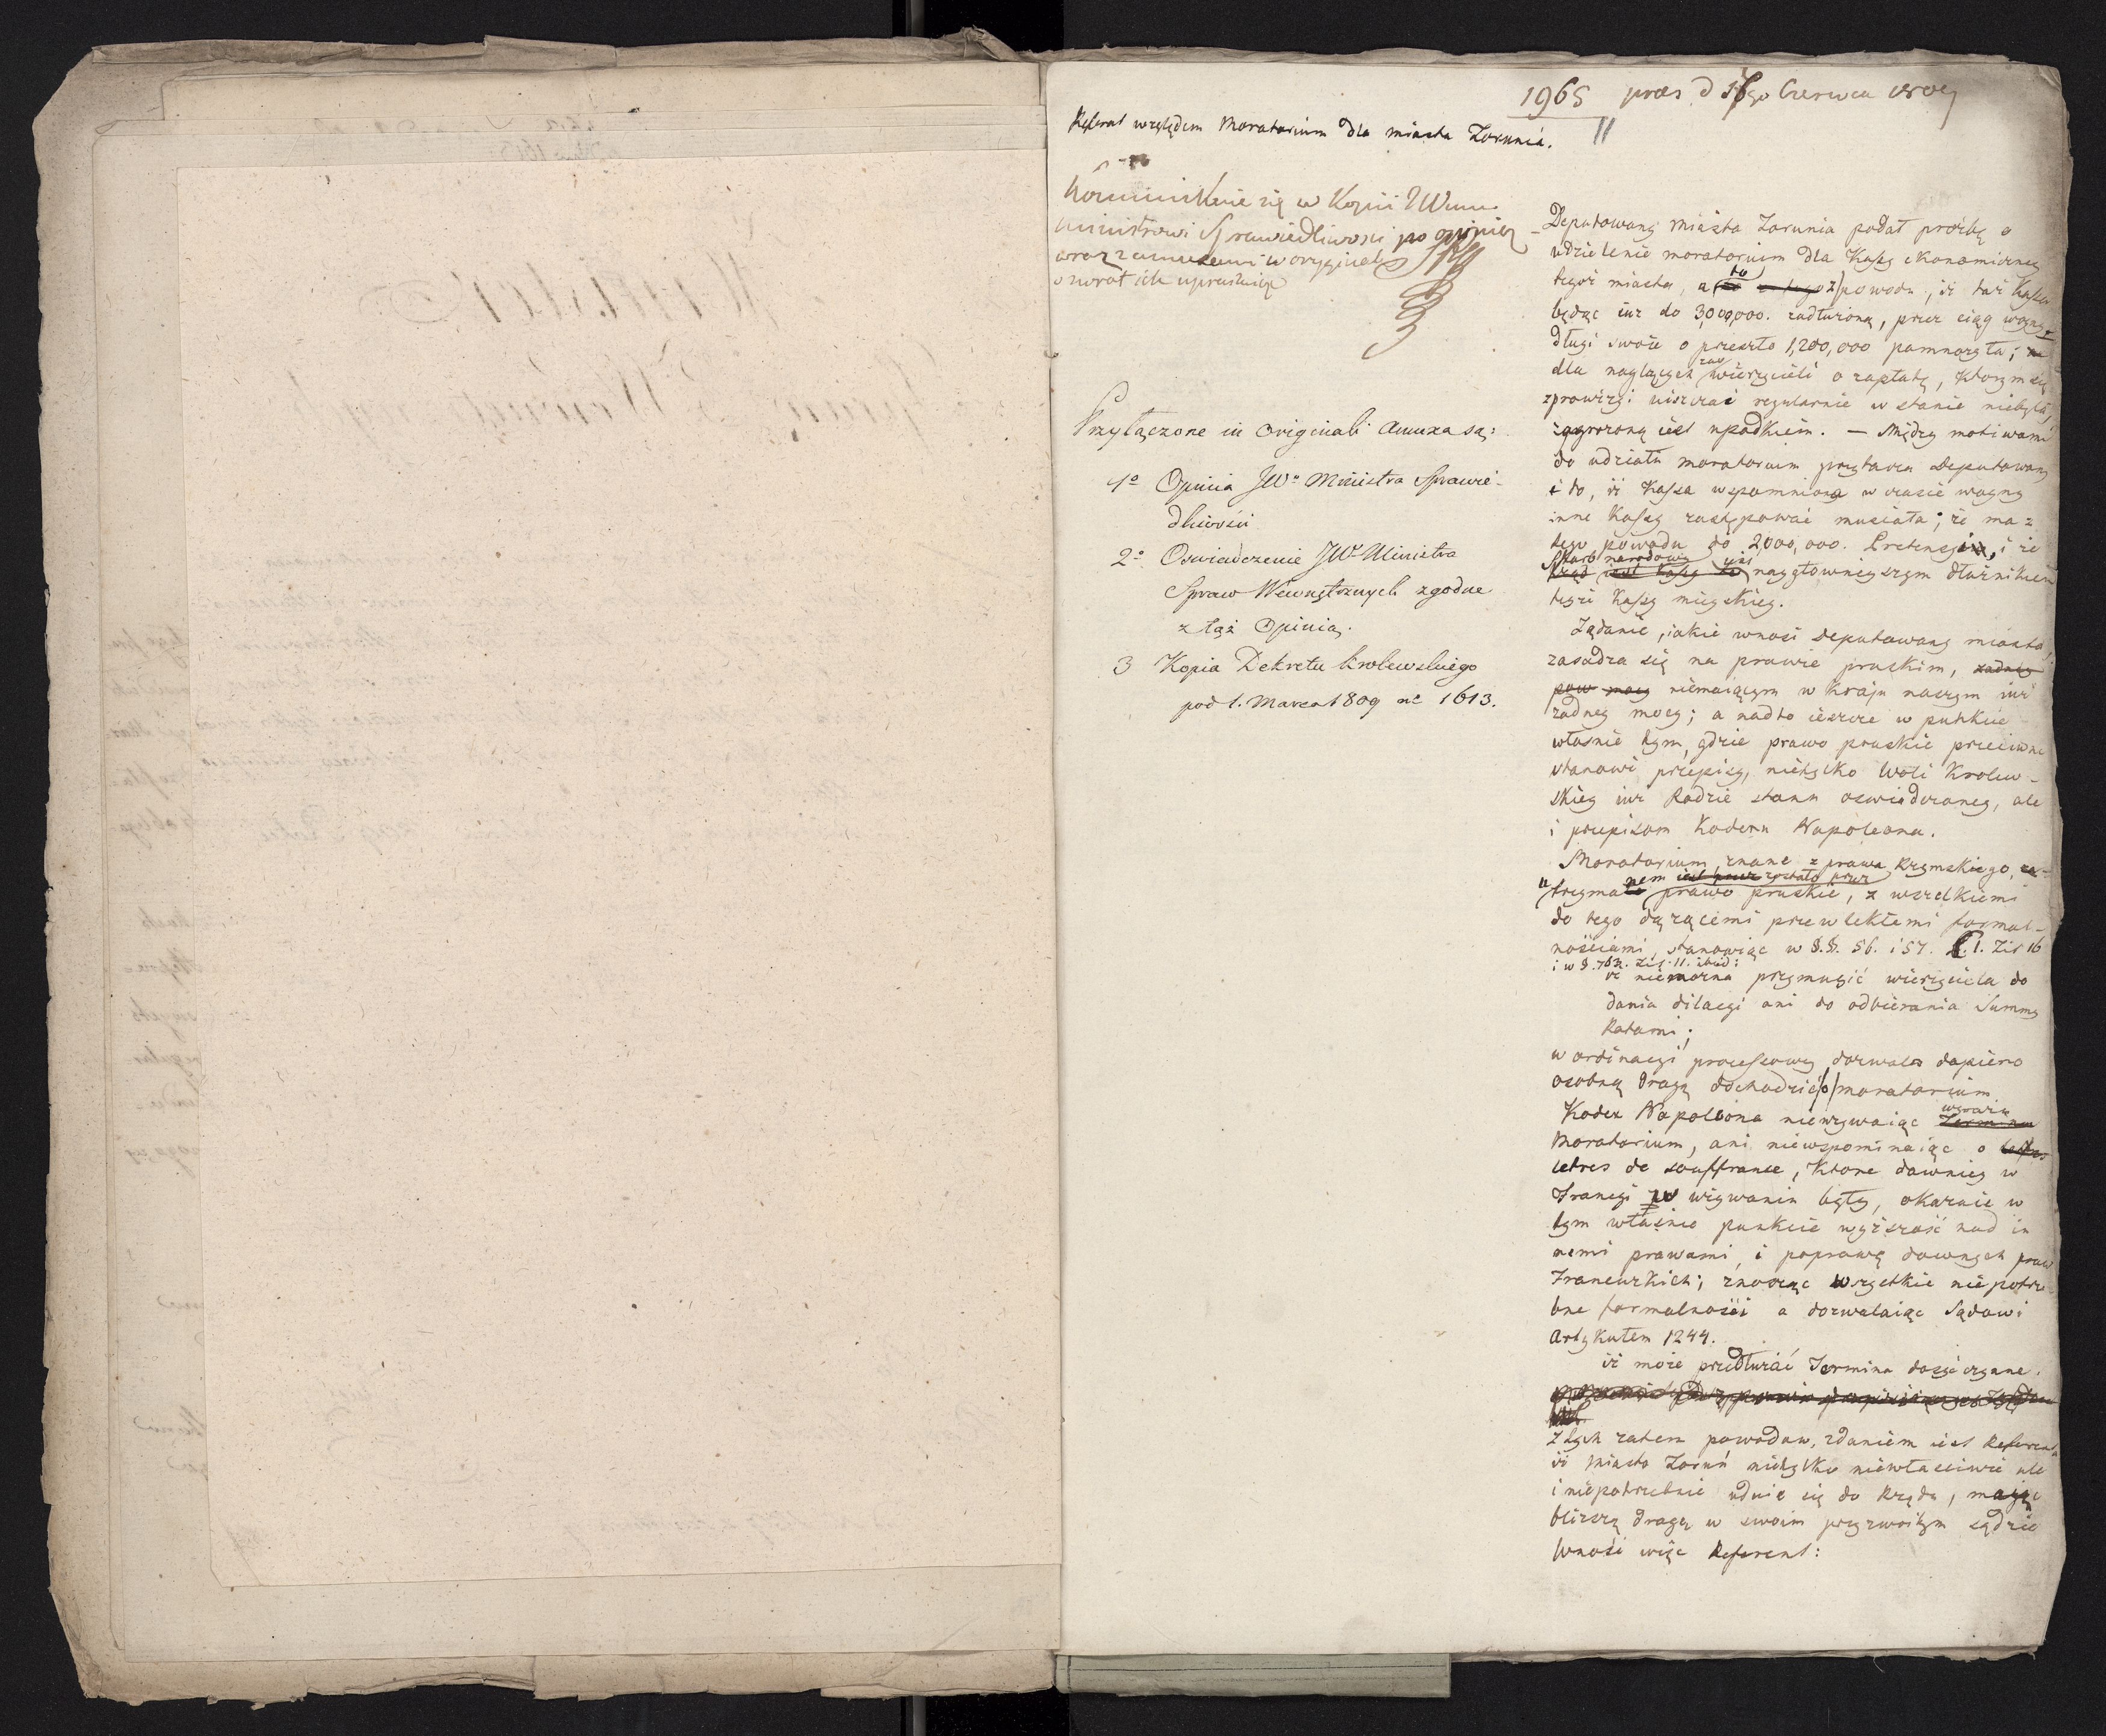 1965 præs d 16go Czerwca 1809
11
Referat względem Moratorium dla miasta Torunia.
Kommunikuie się w Kopii JWmu
Ministrowi Sprawiedliwości po opinię
wraz z annexami w oryginale
o zwrot ich upraszaiąc
Przyłączone in Originali Annexa są:
1o Opinia JWo Ministra Sprawie-
dliwości
2o Oswiadczenie JWo Ministra
Spraw Wewnętrznych zgodne
z tąż Opinią.
3 Kopia Dekretu Krolewskiego
pod 1. Marca 1809 nc 1613.
Deputowany miasta Torunia podał prożbę o
udzielenie moratorium dla Kassy ekonomiczney
tegoż miasta, a to z powodu, iż taż Kassa
będąc iuż do 3,000,000. zadłużoną, przez ciąg woyny
długi swoie o przeszło 1,200,000 pomnożyła;
dla naglących zaś wierzycieli o zapłatę, którym się
z prowizyi uiszczać regularnie w stanie niebyła,
zagrożoną iest upadkiem. — Między motiwami
do udziału moratorium przytacza Deputowany
i to, iż Kassa wspomniona w czasie woyny
inne Kassy zastępować musiała; że ma z
tego powodu do 2,000,000. Pretensyi, i że
Skarb narodowy iest naygłownieyszym dłużnikiem
teyże Kassy mieyskiey.
Żądanie, iakie wnosi Deputowany miasta,
zasadza się na prawie pruskim, żadney
pow mocy niemaiącym w kraju naszym iuż
żadney mocy; a nadto ieszcze w punkcie
własnie tym, gdzie prawo pruskie przeciwne
stanowi przepisy, nietylko Woli Krolew-
skiey iuż Radzie stanu oswiadczoney, ale
i przepisom Kodexu Napoleona.
Moratorium, znane z prawa Rzymskiego,
utrzymane prawo pruskie, z wszelkiemi
do tego dążącemi przewlekłemi formal-
nościami, stanowiąc w §.§. 56. i 57. T.1. Tit 16
i w §. 762. Tit. 11. ibid:
iż niemożna przymusić wierzyciela do
dania dilacyi ani do odbierania Summy
Ratami;
w ordinacyi processowey dozwala dopiero
osobną drogą dochodzić /o/ moratorium.
Kodex Napoleona nieużywaiąc wyrazu
Moratorium, ani niewspominaiąc o lettres
letres de souffrance, ktore dawniey w
Francyi w używaniu były, okazuie w
tym własnie punkcie wyższość nad in
nemi prawami, i poprawę dawnych praw
Francuzkich; znosząc wszelkie niepotrze-
bne formalności a dozwalaiąc Sądowi
Artykułem 1244.
iż może przedłużać Termina dosyć czynne.
Z tych zatem powodow, zdaniem iest Referenta
iż miasto Toruń nietylko niewłasciwie ale
i niepotrzebnie udaie się do Rządu, maiąc
bliższą drogę w swoim przyzwoitym sądzie
Wnosi więc Referent: